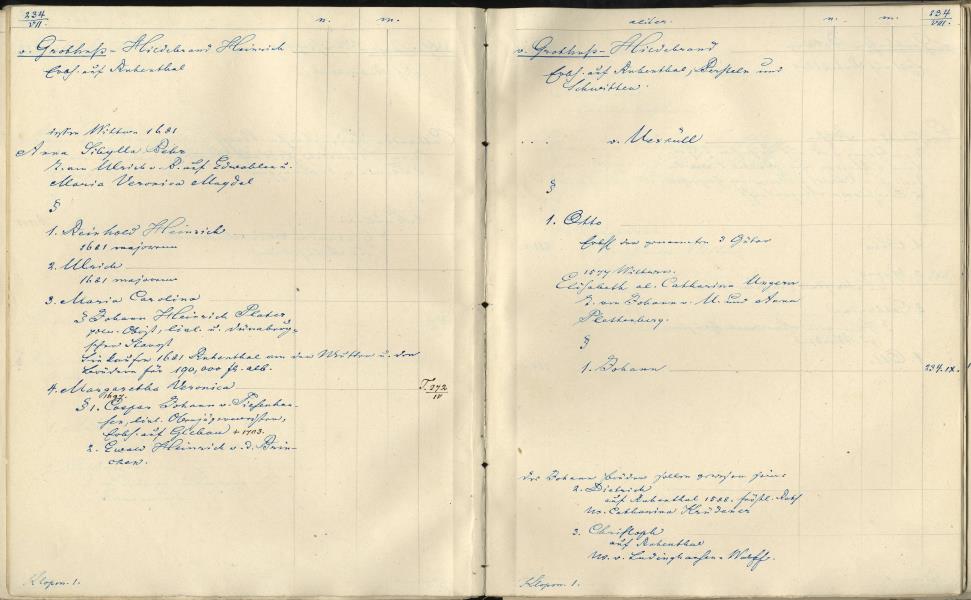 234
VII.
n.
m.
v. Grothuß-Hildebrand Heinrich
Erbh. auf Ruhenthal
Wittwe 1681
Anna Sibylla Behr
T. von Ulrich v. B. auf Edwahlen u.
Maria Veronica Magdal
§
1. Reinhold Heinrich
1681 majorenn
2. Ulrich
1681 majorenn
3. Maria Carolina
§ Johann Heinrich Plater
poln. Obrist, livl. u. dünaburg-
scher
1681 Ruhenthal von der Mutter u. den
Brüdern für 190,000 fl. alb.
4. Margaretha Veronica
T. 272
IV
1697.
§ 1. Caspar Johann v. Tiesenhau-
sen, livl.
Erbh. auf + 1703.
2. Ewald Heinrich v. d. Brin-
cken.
Klopm. 1.
aliter.
n.
m.
234
VIII.
v. Grothuß-Hildebrand
Erbh. auf Ruhenthal, und
Schwitten.
. . . v. Uexküll
§
1. Otto
der genannten 3 Güter
Wittwer.
Elisabeth al. Catharina Ungern
T. von Johann v. U. und Anna
Plettenberg.
§
1. Johann
234. IX.
Des Johann Brüder sollen gewesen sein:
2. Dietrich
auf Ruhenthal
Ux. Catharina Krüdener
3. Christoph
auf Ruhenthal
Ux. v. Ludinghausen-Wolff.
Klopm. 1.